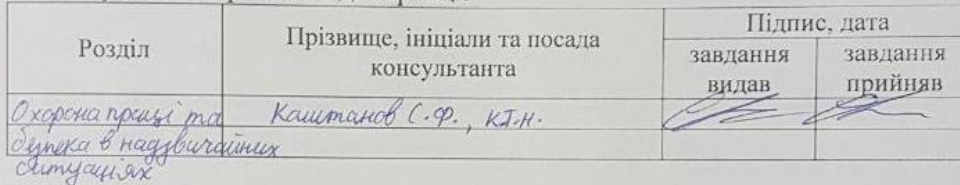 Розділ
Прізвище, ініціали та посада
консультанта
Підпис, дата
завдання
видав
завдання
прийняв
Охорона праці та
безпека в надзвичайних
ситуаціях
Каштанов С.Ф., к.т.н.